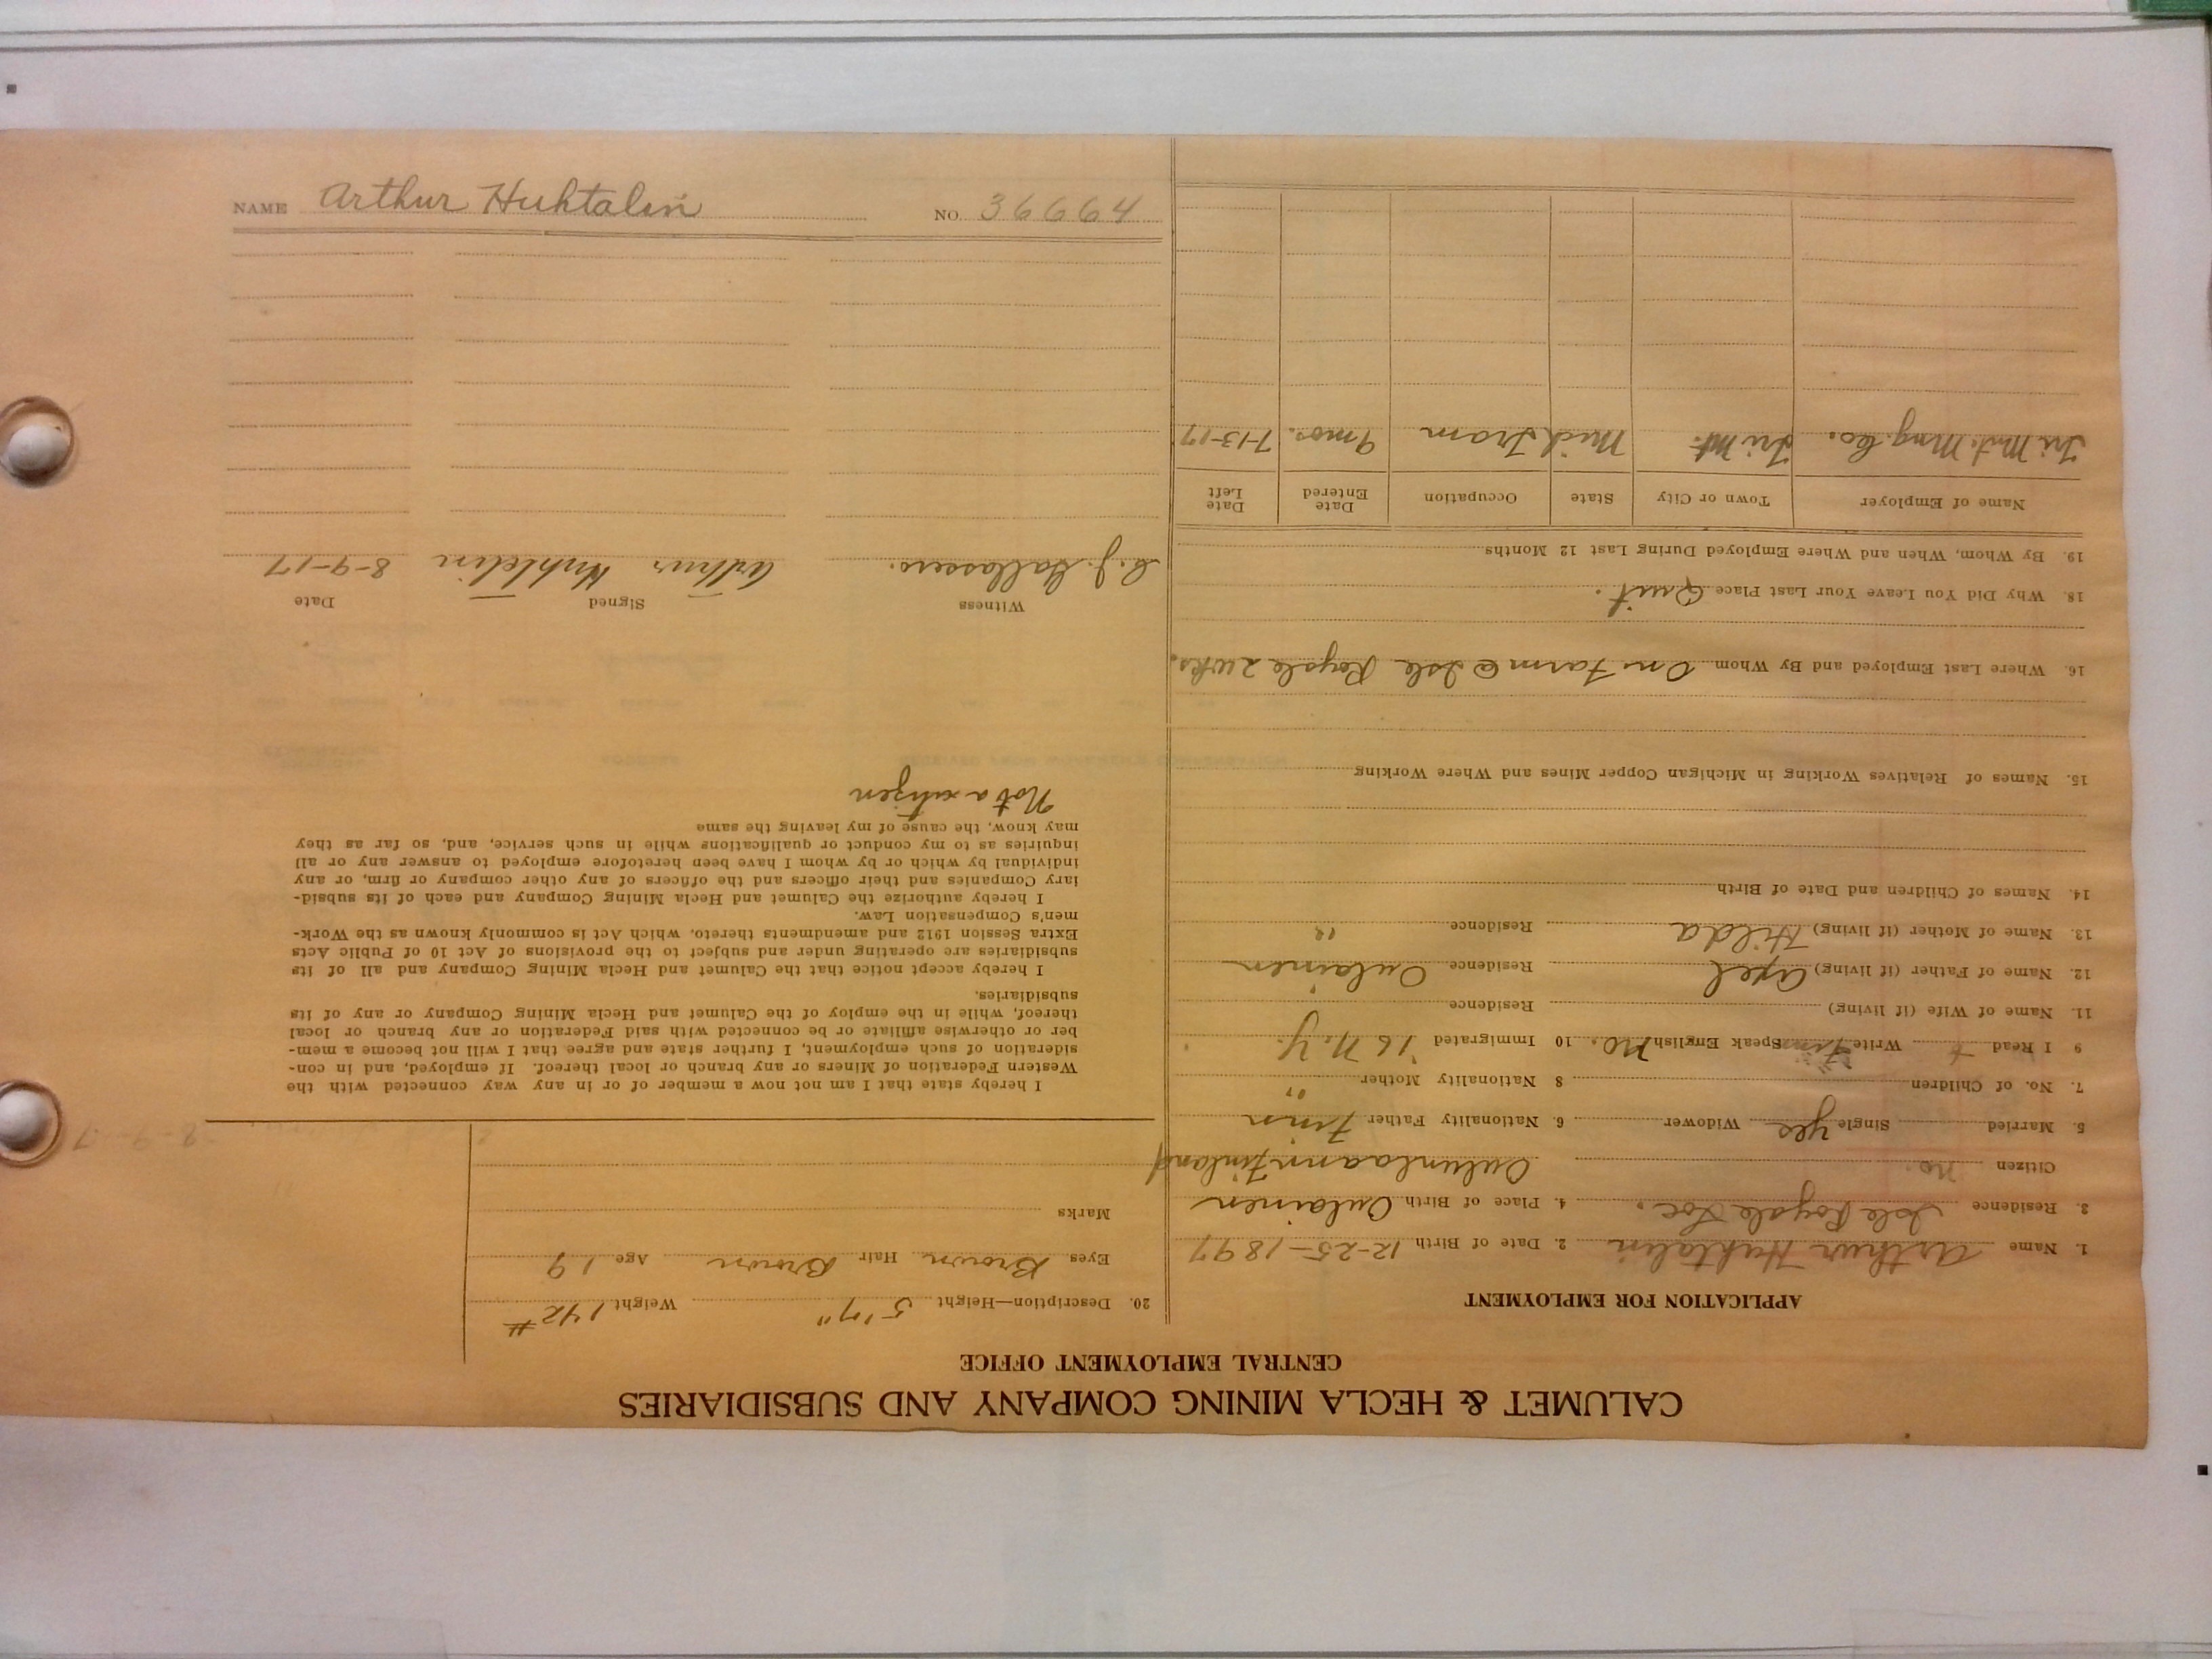 CALUMET & HECLA MINING COMPANY AND SUBSIDIARIES
CENTRAL EMPLOYMENT OFFICE
APPLICATION FOR EMPLOYMENT
1. Name Arthur Huhtalin 2. Date of Birth 12-25-1897
3. Residence Isle Royale Loc. 4. Place of Birth Oulainen
Citizen no. Oulunlaani Finland
5. Married Single yes Widower 6. Nationality Father Finn
7. No. of Children 8 Nationality Mother "
9 I Read + Write Finn Speak English No. 10 Immigrated '16 N.Y.
11. Name of Wife (if living) Residence
12. Name of Father (if living) Axel Residence Oulainen
13. Name of Mother (if living) Hilda Residence "
14. Names of Children and Date of Birth
15. Names of Relatives Working in Michigan Copper Mines and Where Working
16. Where Last Employed and By Whom On Farm @ Isle Royale 2 wks.
18. Why Did You Leave Your Last Place Quit.
19. By Whom, When and Where Employed During Last 12 Months
Name of Employer Town or City State Occupation Date Entered Date Left
Tri Mt. Mng. Co. Tri Mt. Mich Tram 9 mos. 7-13-17
20. Description—Height 5'7" Weight 142#
Eyes Brown Hair Brown Age 19
Marks
I hereby state that I am not now a member of or in any way connected with the
Western Federation of Miners or any branch or local thereof. If employed, and in con-
sideration of such employment, I further state and agree that I will not become a mem-
ber or otherwise affiliate or be connected with said Federation or any branch or local
thereof, while in the employ of the Calumet and Hecla Mining Company or any of its
subsidiaries.
I hereby accept notice that the Calumet and Hecla Mining Company and all of its
subsidiaries are operating under and subject to the provisions of Act 10 of Public Acts
Extra Session 1912 and amendments thereto, which Act is commonly known as the Work-
men's Compensation Law.
I hereby authorize the Calumet and Hecla Mining Company and each of its subsid-
iary Companies and their officers and the officers of any other company or firm, or any
individual by which or by whom I have been heretofore employed to answer any or all
inquiries as to my conduct or qualifications while in such service, and, so far as they
may know, the cause of my leaving the same
Not a citizen
Witness Signed Date
Arthur Huhtelin 8-9-17
NAME Arthur Huhtalin NO. 36664